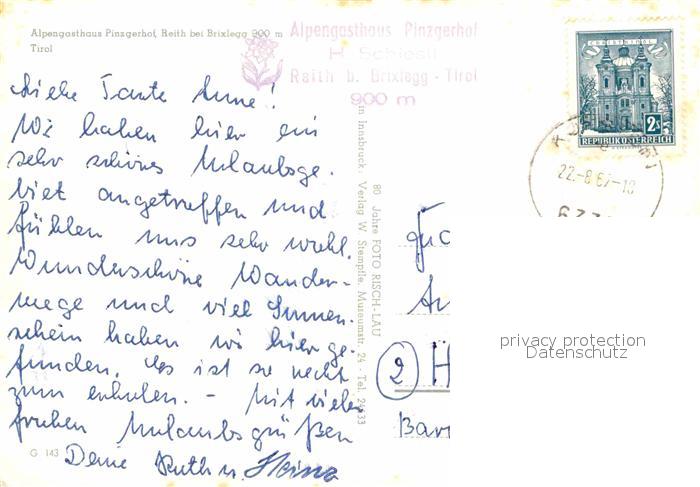 Alpengasthaus Pinzgerhof, Reith bei Brixlegg 900 m
Tirol
Alpengasthaus Pinzgerhof
H. Schiestl
Reith b. Brixlegg - Tirol
900 m
Liebe Tante Anne!
Wir haben hier ein
sehr schönes Urlaubsge-
biet angetroffen und
fühlen uns sehr wohl.
Wunderschöne Wander-
wege und viel Sonnen-
schein haben wir hier ge-
funden. Es ist so recht
zum erholen. - Mit vielen
frohen Urlaubsgrüßen
Deine Ruth u. Heinz
G 143
80 Jahre FOTO RISCH-LAU
Innsbruck, Verlag W. Stempfle, Museumstr. 24 - Tel.
2 S
REPUBLIK ÖSTERREICH
22.-8.67-18
2 H
Bar
privacy protection
Datenschutz